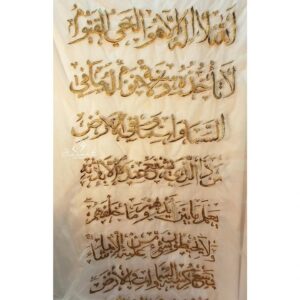 الله لا إله إلا هو الحي القيوم
لا تأخذه سنة ولا نوم له ما في
السماوات وما في الأرض
من ذا الذي يشفع عنده إلا بإذنه
يعلم ما بين أيديهم وما خلفهم
ولا يحيطون بشيء من علمه إلا بما
شاء وسع كرسيه السماوات والأرض